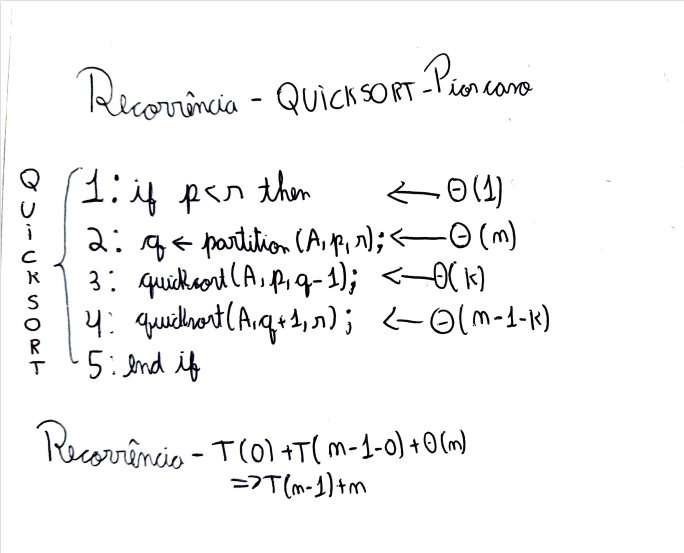 Recorrência - QUICKSORT - Pior caso
QUICKSORT
1: if p<r then ← Θ(1)
2: q ← partition (A, p, r); ← Θ(n)
3: quicksort(A, p, q-1); ← Θ(k)
4: quicksort(A, q+1, r); ← Θ(n-1-k)
5: end if
Recorrência - T(0) + T(n-1-0) + Θ(n)
=> T(n-1)+n